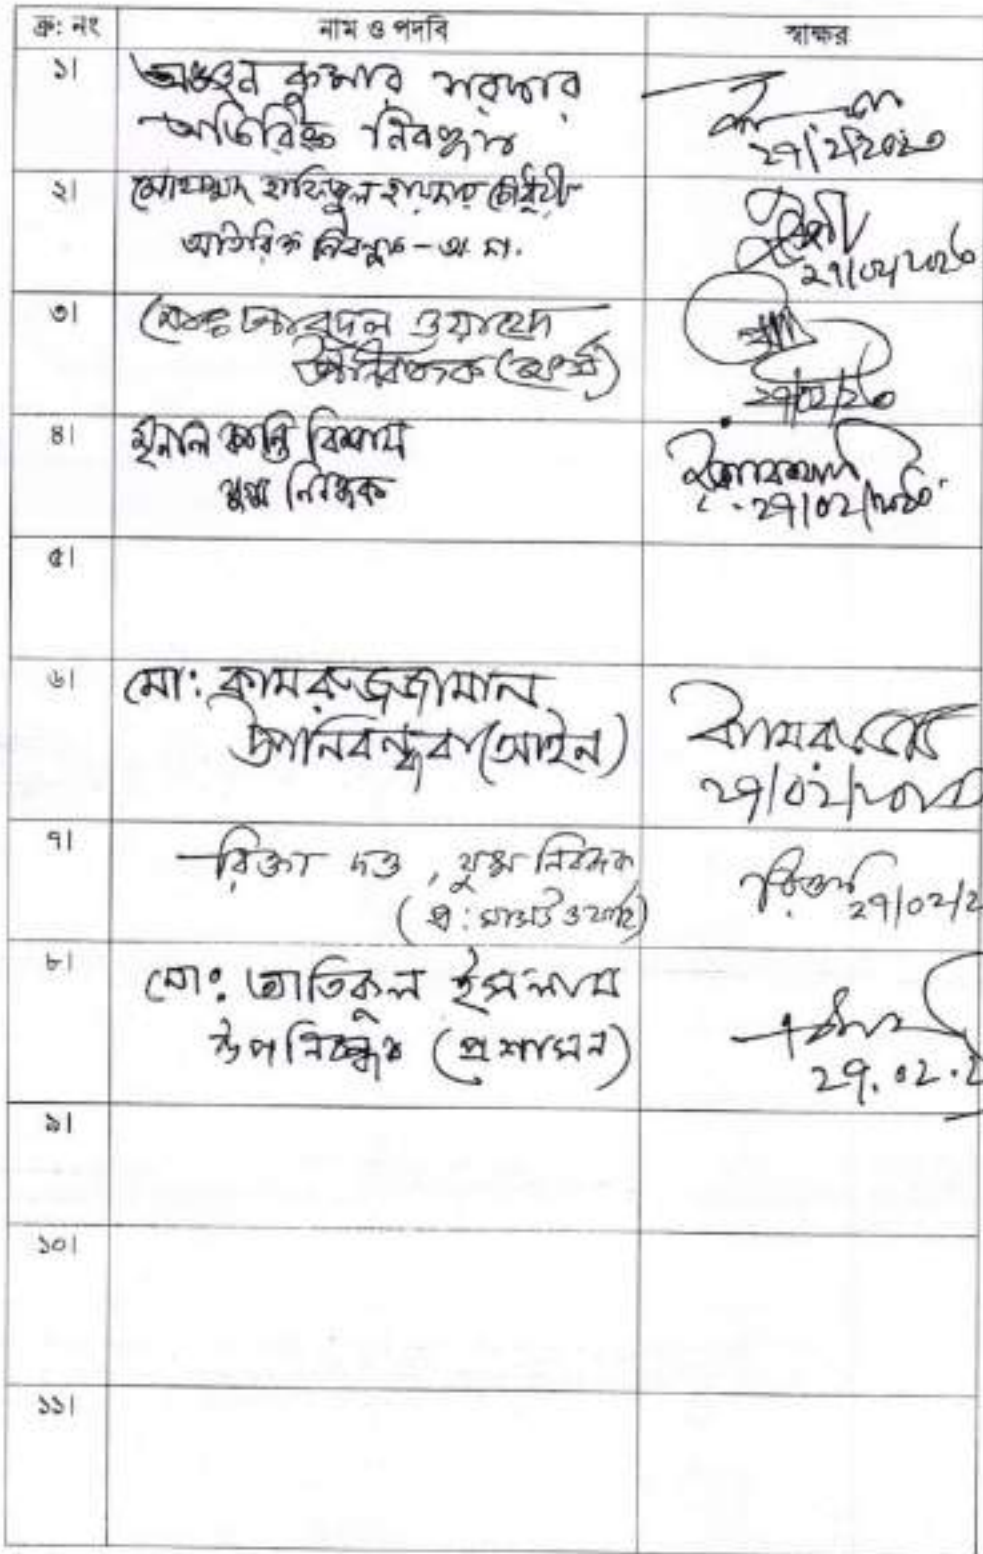 ক্র: নং নাম ও পদবি স্বাক্ষর
১। অঞ্জন কুমার সরদার
অতিরিক্ত নিবন্ধক
২৭/২/২০২০
২। মোহাম্মদ হাফিজুল হায়দার চৌধুরী
অতিরিক্ত নিবন্ধক - অ. দা.
২৭/০২/২০২০
৩। মোঃ আবদুল ওয়াহেদ
উপনিবন্ধক
২৭/০২/২০
৪। মৃনাল কান্তি বিশ্বাস
যুগ্ম নিবন্ধক
২৭/০২/২০২০
৫।
৬। মো: কামরুজ্জামান
উপনিবন্ধক (আইন)
২৭/০২/২০২০
৭। রিক্তা দত্ত, যুগ্ম নিবন্ধক
রিক্তা ২৭/০২/২
৮। মোঃ আতিকুল ইসলাম
উপ নিবন্ধক (প্রশাসন)
২৭.০২.২
৯।
১০।
১১।